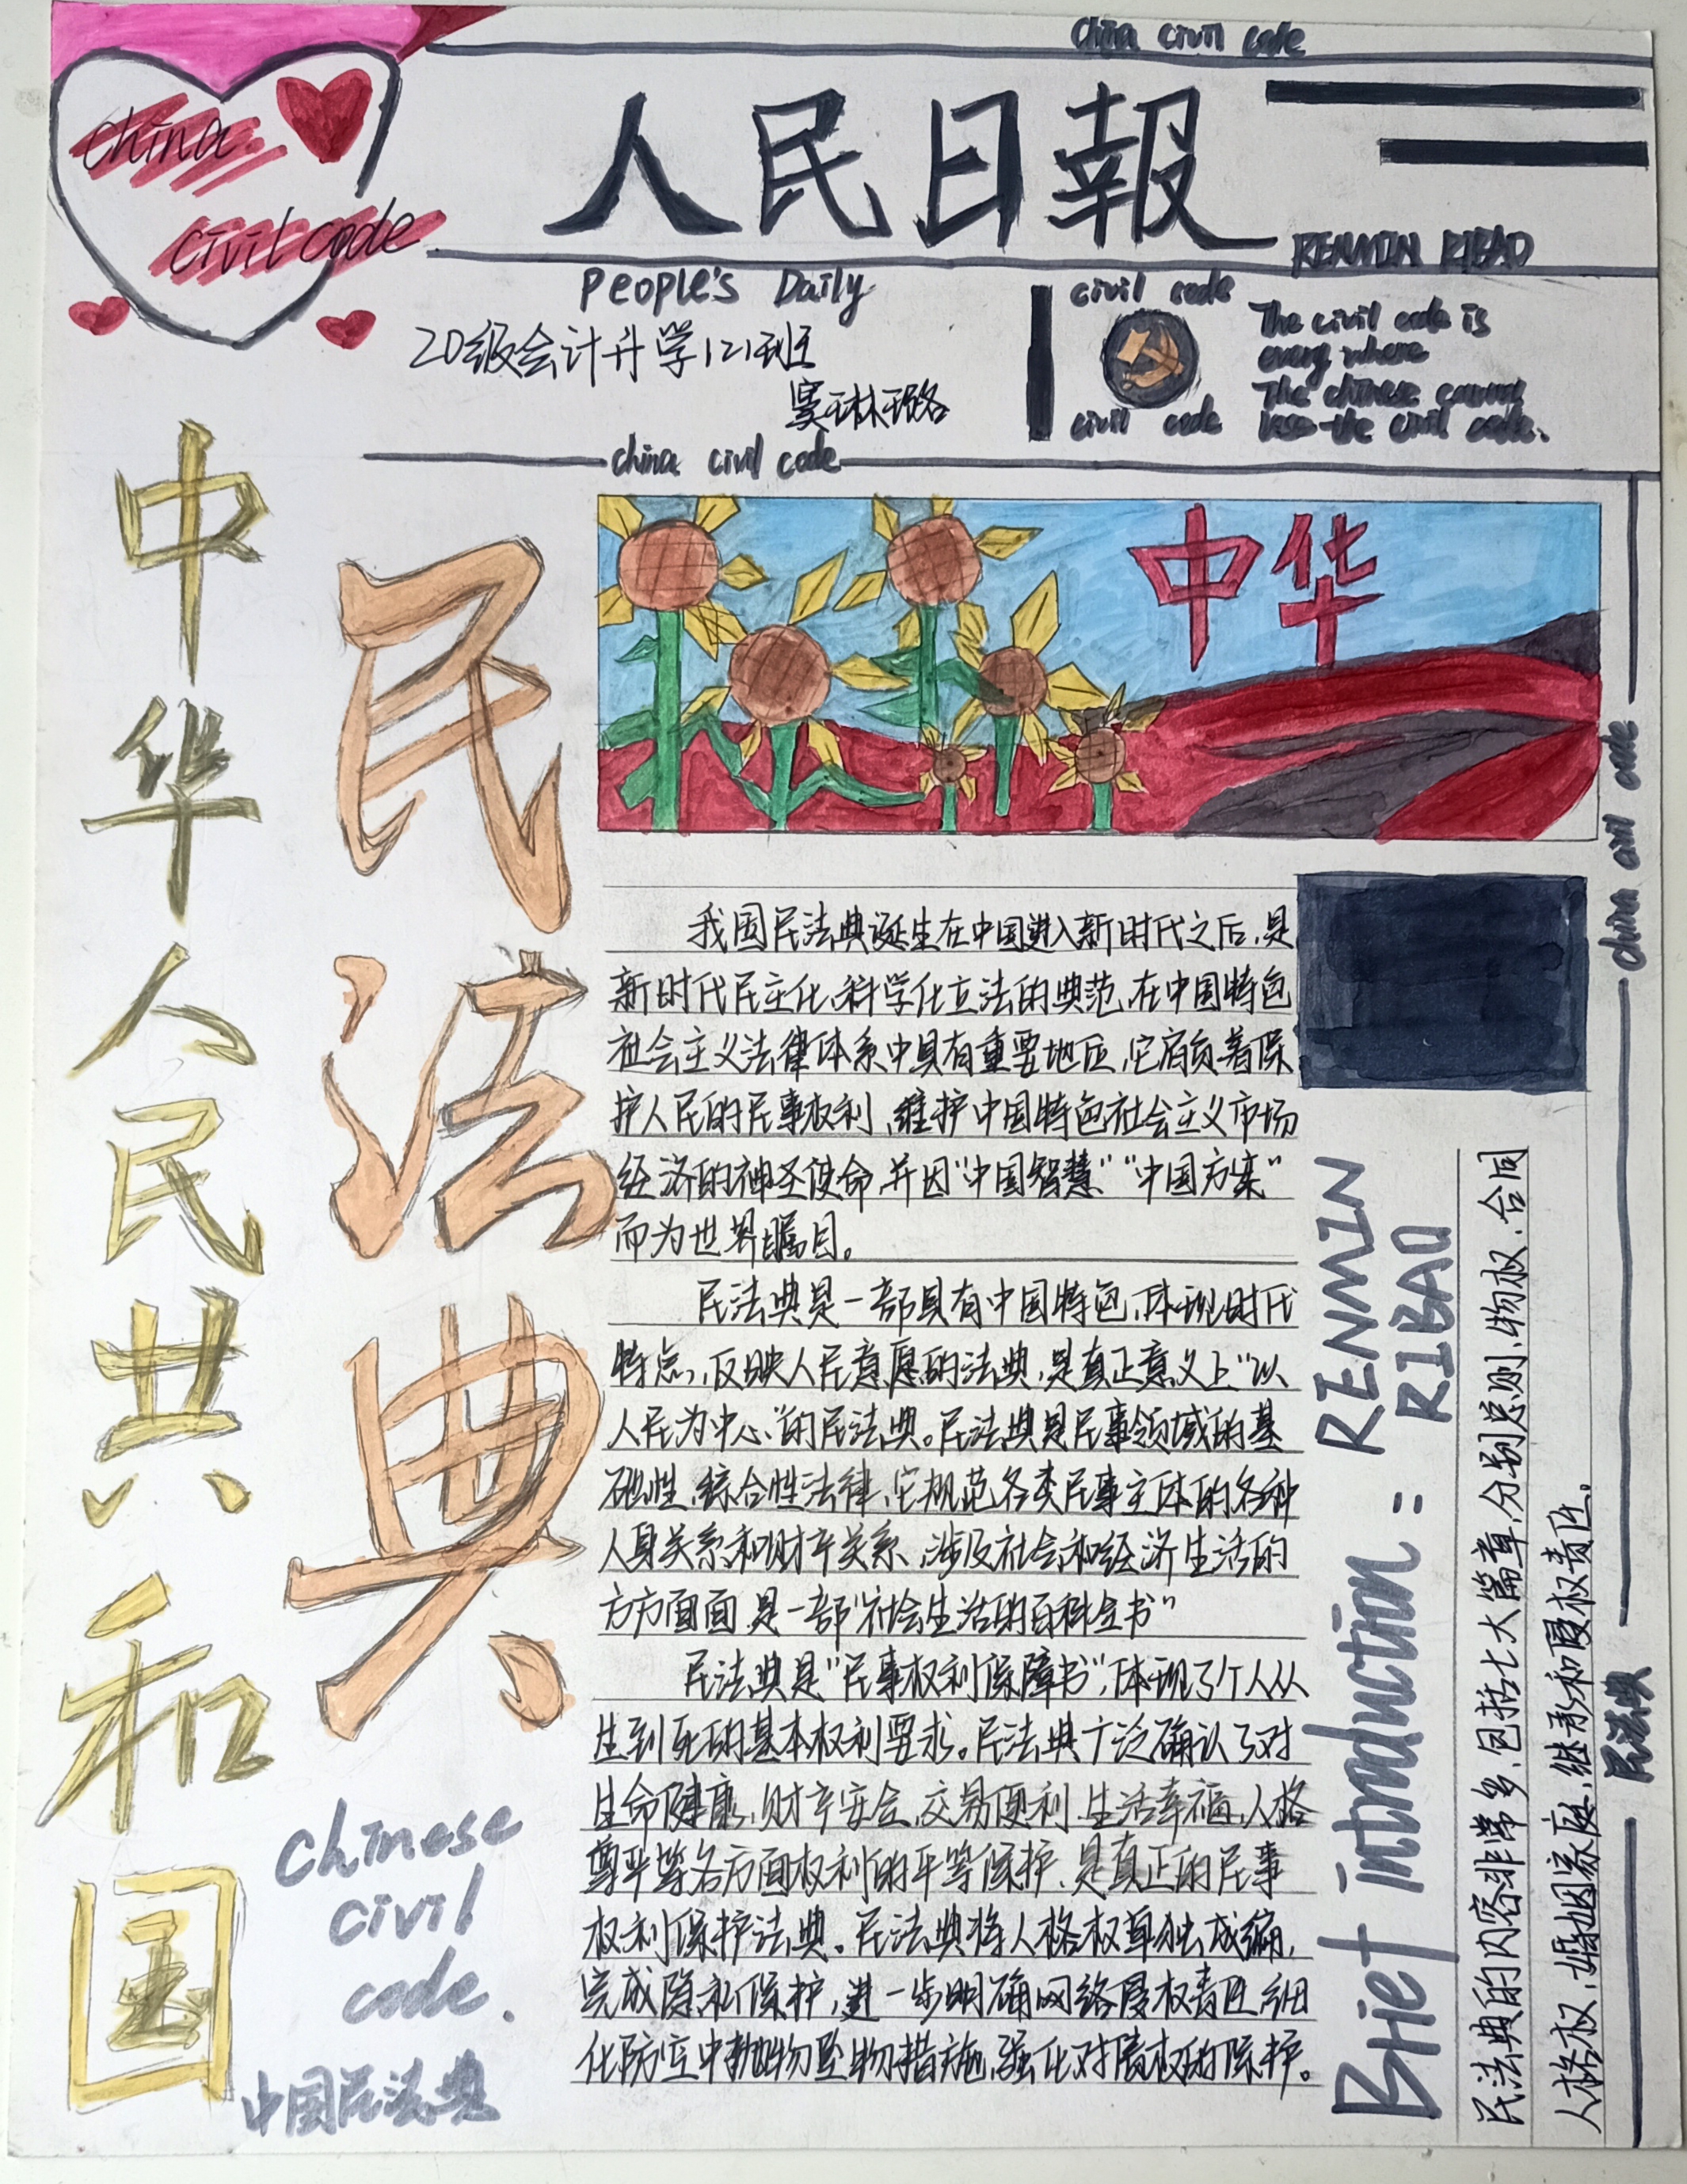 china civil code
china
civil code
人民日報
RENMIN RIBAO
People's Daily
20级会计升学121班
窦琳璐
civil code
civil code
The civil code is
every where
The chinese cannot
lose the civil code.
china civil code
中华人民共和国
民法典
chinese
civil
code.
中国民法典
中华
我国民法典诞生在中国进入新时代之后,是
新时代民主化、科学化立法的典范,在中国特色
社会主义法律体系中具有重要地位,它肩负着保
护人民的民事权利、维护中国特色社会主义市场
经济的神圣使命,并因“中国智慧”“中国方案”
而为世界瞩目。
民法典是一部具有中国特色,体现时代
特点,反映人民意愿的法典,是真正意义上“以
人民为中心”的民法典。民法典是民事领域的基
础性、综合性法律,它规范各类民事主体的各种
人身关系和财产关系、涉及社会和经济生活的
方方面面,是一部“社会生活的百科全书”
民法典是“民事权利保障书”,体现了个人从
生到死的基本权利要求。民法典广泛确认了对
生命健康,财产安全,交易便利,生活幸福,人格
尊平等各方面权利的平等保护,是真正的民事
权利保护法典。民法典将人格权单独成编,
完成隐私保护,进一步明确网络侵权责任,细
化防空中抛物坠物措施,强化对债权的保护。
Brief introduction: RENMIN
RIBAO
民法典的内容非常多,包括七大篇章,分别总则、物权、合同
人格权,婚姻家庭,继承和侵权责任。
china civil code
民法典